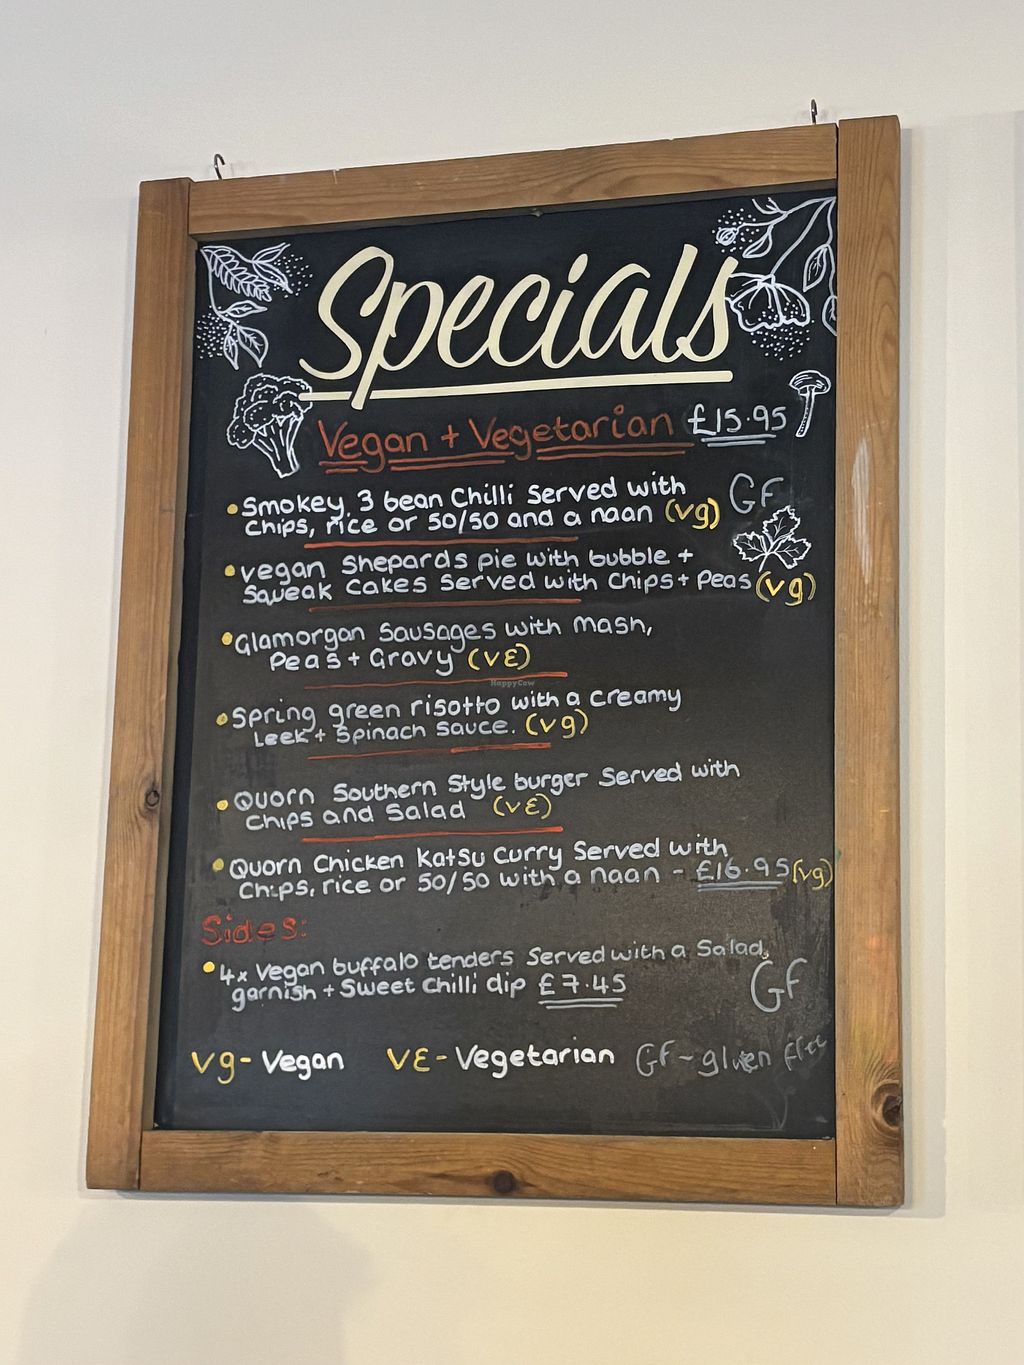 Specials
Vegan + Vegetarian £15.95
• Smokey, 3 bean Chilli Served with GF
Chips, rice or 50/50 and a naan (vg)
• vegan Shepards pie with bubble +
Squeak Cakes Served with Chips + Peas (vg)
• Glamorgan Sausages with mash,
Peas + Gravy (VE)
HappyCow
• Spring green risotto with a creamy
Leek + Spinach Sauce. (vg)
• Quorn Southern Style burger Served with
Chips and Salad (VE)
• Quorn Chicken Katsu Curry Served with
Chips, rice or 50/50 with a naan - £16.95 (vg)
Sides:
• 4x Vegan buffalo tenders Served with a Salad,
garnish + Sweet Chilli dip £7.45 GF
Vg - Vegan VE - Vegetarian GF - gluten free